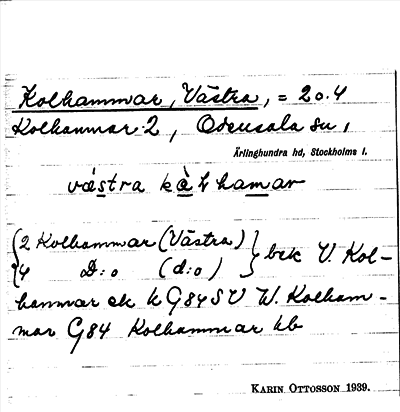 Kolhammar, Västra, = 2 o. 4
Kolhammar 2, Odensala sn,
Ärlinghundra hd, Stockholms l.
västra kå̀lhamar
2 Kolhammar (Västra) } bek V. Kol-
4 D:o (d:o)
hammar ek k G84SV W. Kolham-
mar G84 Kolhammar hb
KARIN OTTOSSON 1939.